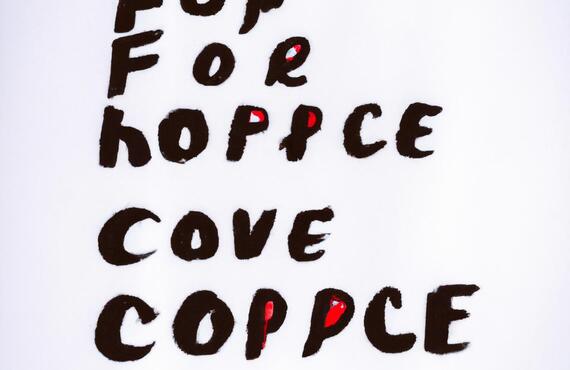 FOR
hOPPCE
COVE
COPPCE